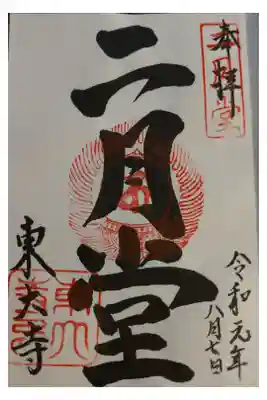 奉拝
令和元年
八月七日
二月堂
東大寺